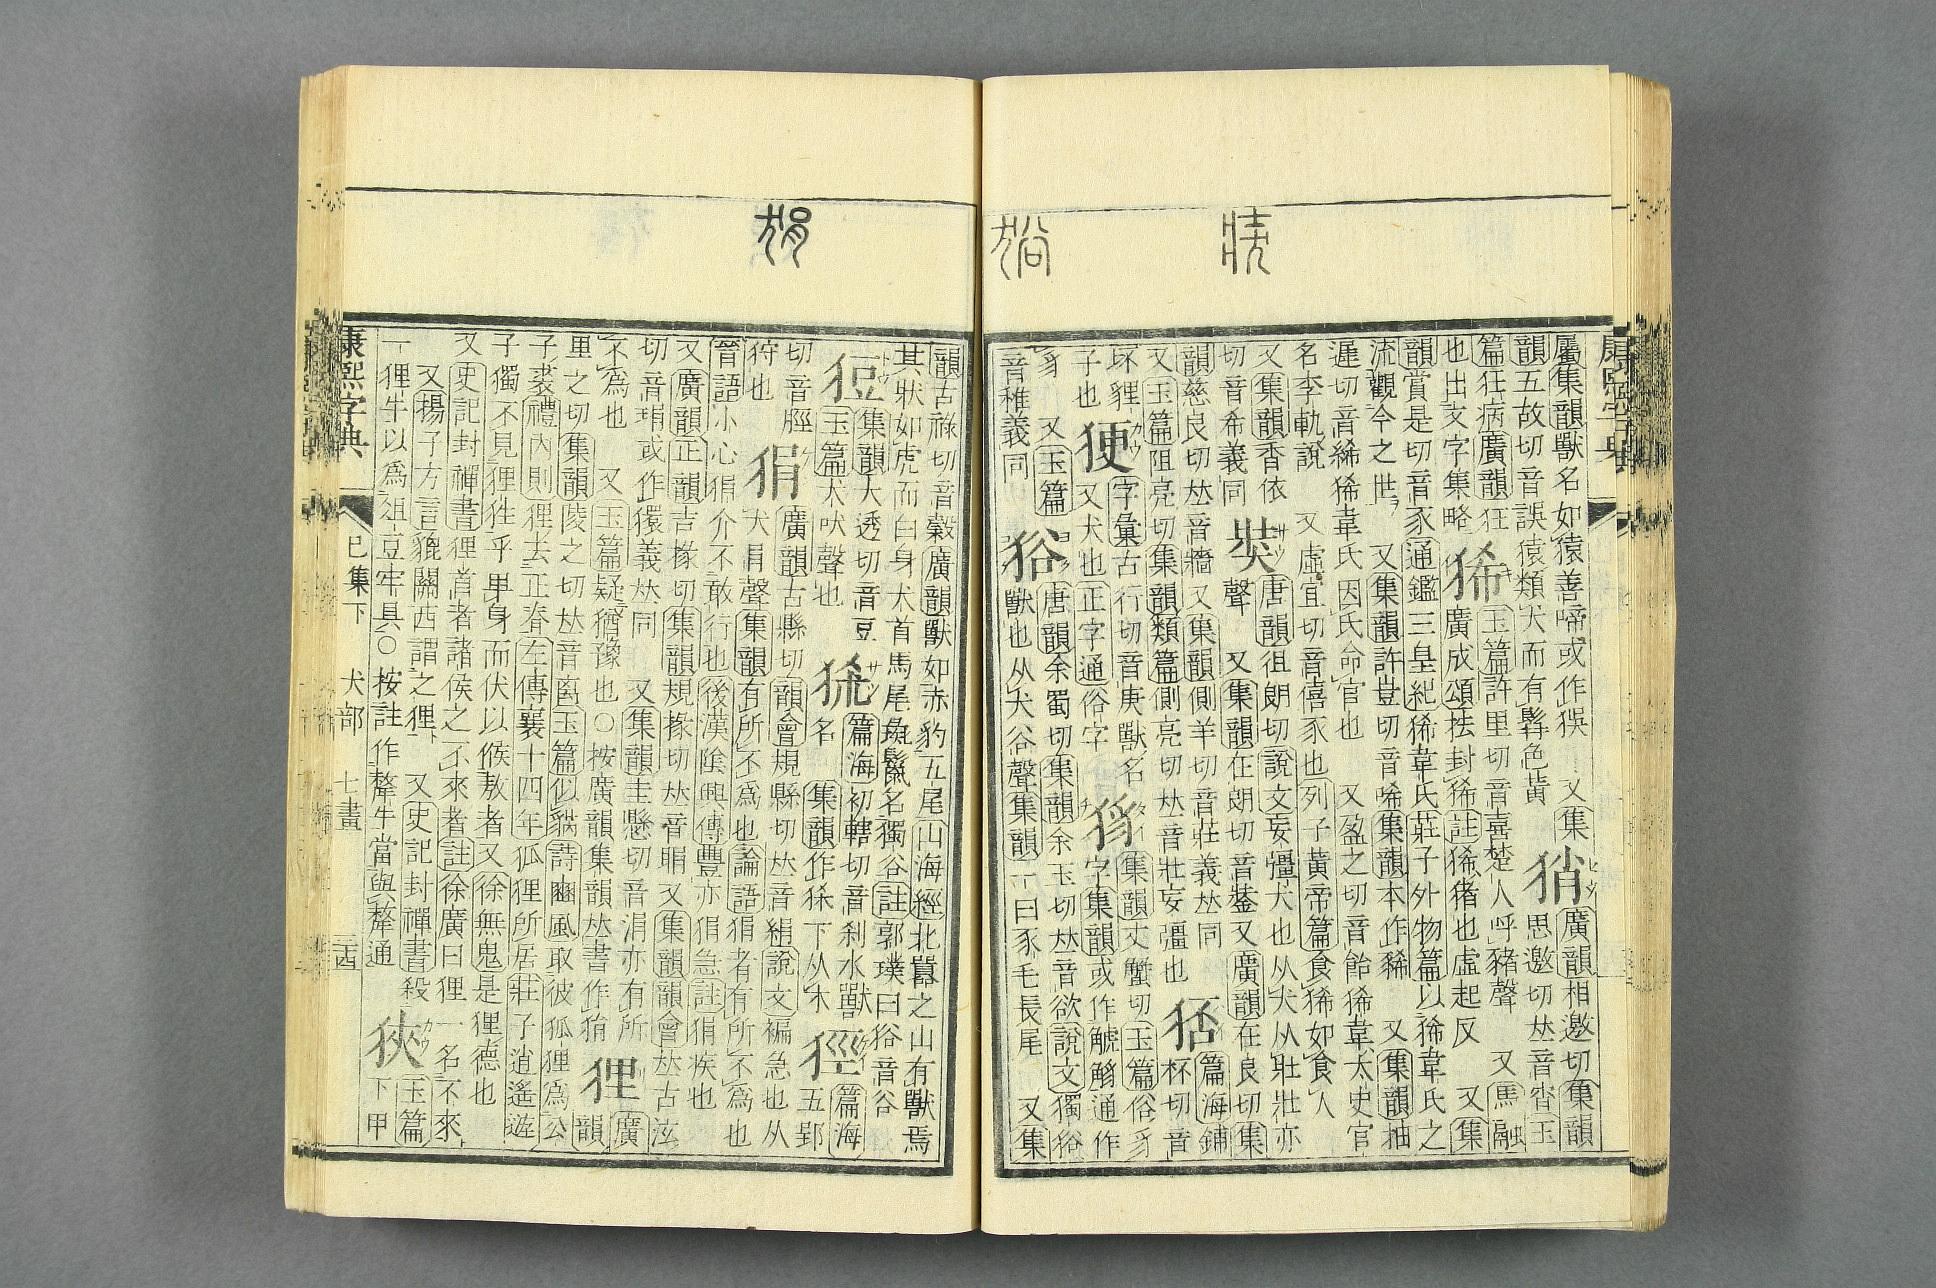 康熙字典
屬集韻獸名如猿善啼或作 又集
韻五故切音誤猿類犬而有髯色黃
廣韻相邀切集韻
思邀切𠀤音宵玉
篇狂病廣韻狂
也出文字集略
狶
玉篇許里切音喜楚人呼豬聲 又馬融
廣成頌抾封狶註狶猪也虛起反 又集
韻賞是切音豕通鑑三皇紀狶韋氏莊子外物篇以狶韋氏之
流觀今之世 又集韻許豈切音唏集韻本作豨 又集韻抽
遲切音絺狶韋氏因氏命官也 又盈之切音飴狶韋太史官
名李軌說 又虛宜切音僖豕也列子黃帝篇食狶如食人
又集韻香依
切音希義同
奘
唐韻徂朗切說文妄彊犬也从犬从壯壯亦
聲 又集韻在朗切音 又廣韻在良切集
韻慈良切𠀤音牆又集韻側羊切音莊義𠀤同
又玉篇阻亮切集韻類篇側亮切𠀤音壯妄彊也
篇海鋪
杯切音
坏貍
子也
㹴
字彙古行切音庚獸名
又犬也正字通俗字
集韻丈蟹切玉篇俗豸
字集韻或作 通作
豸 又玉篇
音稚義同
唐韻余蜀切集韻余玉切𠀤音欲說文獨
獸也从犬谷聲集韻一曰豕毛長尾 又集
韻古祿切音穀廣韻獸如赤豹五尾山海經北嚻之山有獸焉
其狀如虎而白身犬首馬尾彘鬣名獨 註郭璞曰 音谷
集韻大透切音豆
玉篇犬吠聲也
篇海初轄切音刹水獸
名 集韻作 下从木
篇海
五郢
切音脛
狩也
狷
廣韻古縣切韻會規縣切𠀤音絹說文褊急也从
犬肙聲集韻有所不爲也論語狷者有所不爲也
晉語小心狷介不敢行也後漢陰興傳豐亦狷急註狷疾也
又廣韻正韻吉掾切集韻規掾切𠀤音睊又集韻韻會𠀤古泫
切音琄或作獧義𠀤同 又集韻圭懸切音涓亦有所
不爲也 又玉篇疑猶豫也○按廣韻集韻𠀤書作
狸
廣
韻
里之切集韻陵之切𠀤音釐玉篇似貓詩豳風取彼狐狸爲公
子裘禮內則狸去正脊左傳襄十四年狐狸所居莊子逍遙遊
子獨不見狸狌乎𤰞身而伏以候敖者又徐無鬼是狸德也
又史記封禪書狸首者諸侯之不來者註徐廣曰狸一名不來
又揚子方言貔關西謂之狸 又史記封禪書殺
一狸牛以爲俎豆牢具○按註作犛牛當與犛通
狹
玉篇
下甲
康熙字典
巳集下 犬部 七畫